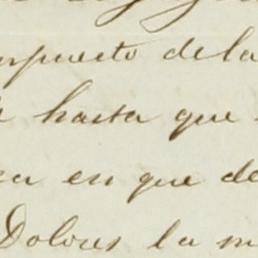 puesto de la
hasta que
en que de
Dolores la m